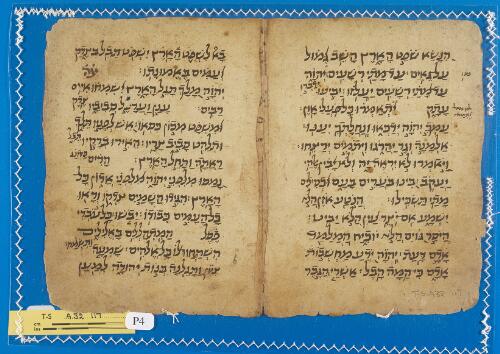 הנשא שפט הארץ השב גמול
על גאים: עד מתי רשעים יהוה
עד מתי רשעים יעלזו: יביעו ידברו
עתק יתאמרו כל פעלי און
עמך יהוה ידכאו ונחלתך יענו
אלמנה וגר יהרגו ויתומים ירצחו
ויאמרו לא יראה יה ולא יבין אלהי
יעקב: בינו בערים בעם וכסילים
מתי תשכילו: הנטע אזן הלא
ישמע אם יצר עין הלא יביט:
היסר גוים הלא יוכיח המלמד
אדם דעת: יהוה ידע מחשבות
אדם כי המה הבל: אשרי הגבר
T-S A32 117
בא לשפט הארץ ישפט תבל בצדק
ועמים באמונתו:
יהוה מלך תגל הארץ ישמחו איים
רבים: ענן וערפל סביביו צדק
ומשפט מכון כסאו: אש לפניו תלך
ותלהט סביב צריו: האירו ברקיו תבל
ראתה ותחל הארץ: הרים כדונג
נמסו מלפני יהוה מלפני אדון כל
הארץ: הגידו השמים צדקו וראו
כל העמים כבודו: יבשו כל עבדי
פסל המתהללים באלילים
השתחוו לו כל אלהים: שמעה ותשמח
ציון ותגלנה בנות יהודה למען
T-S A32 117
cm
ins
P4